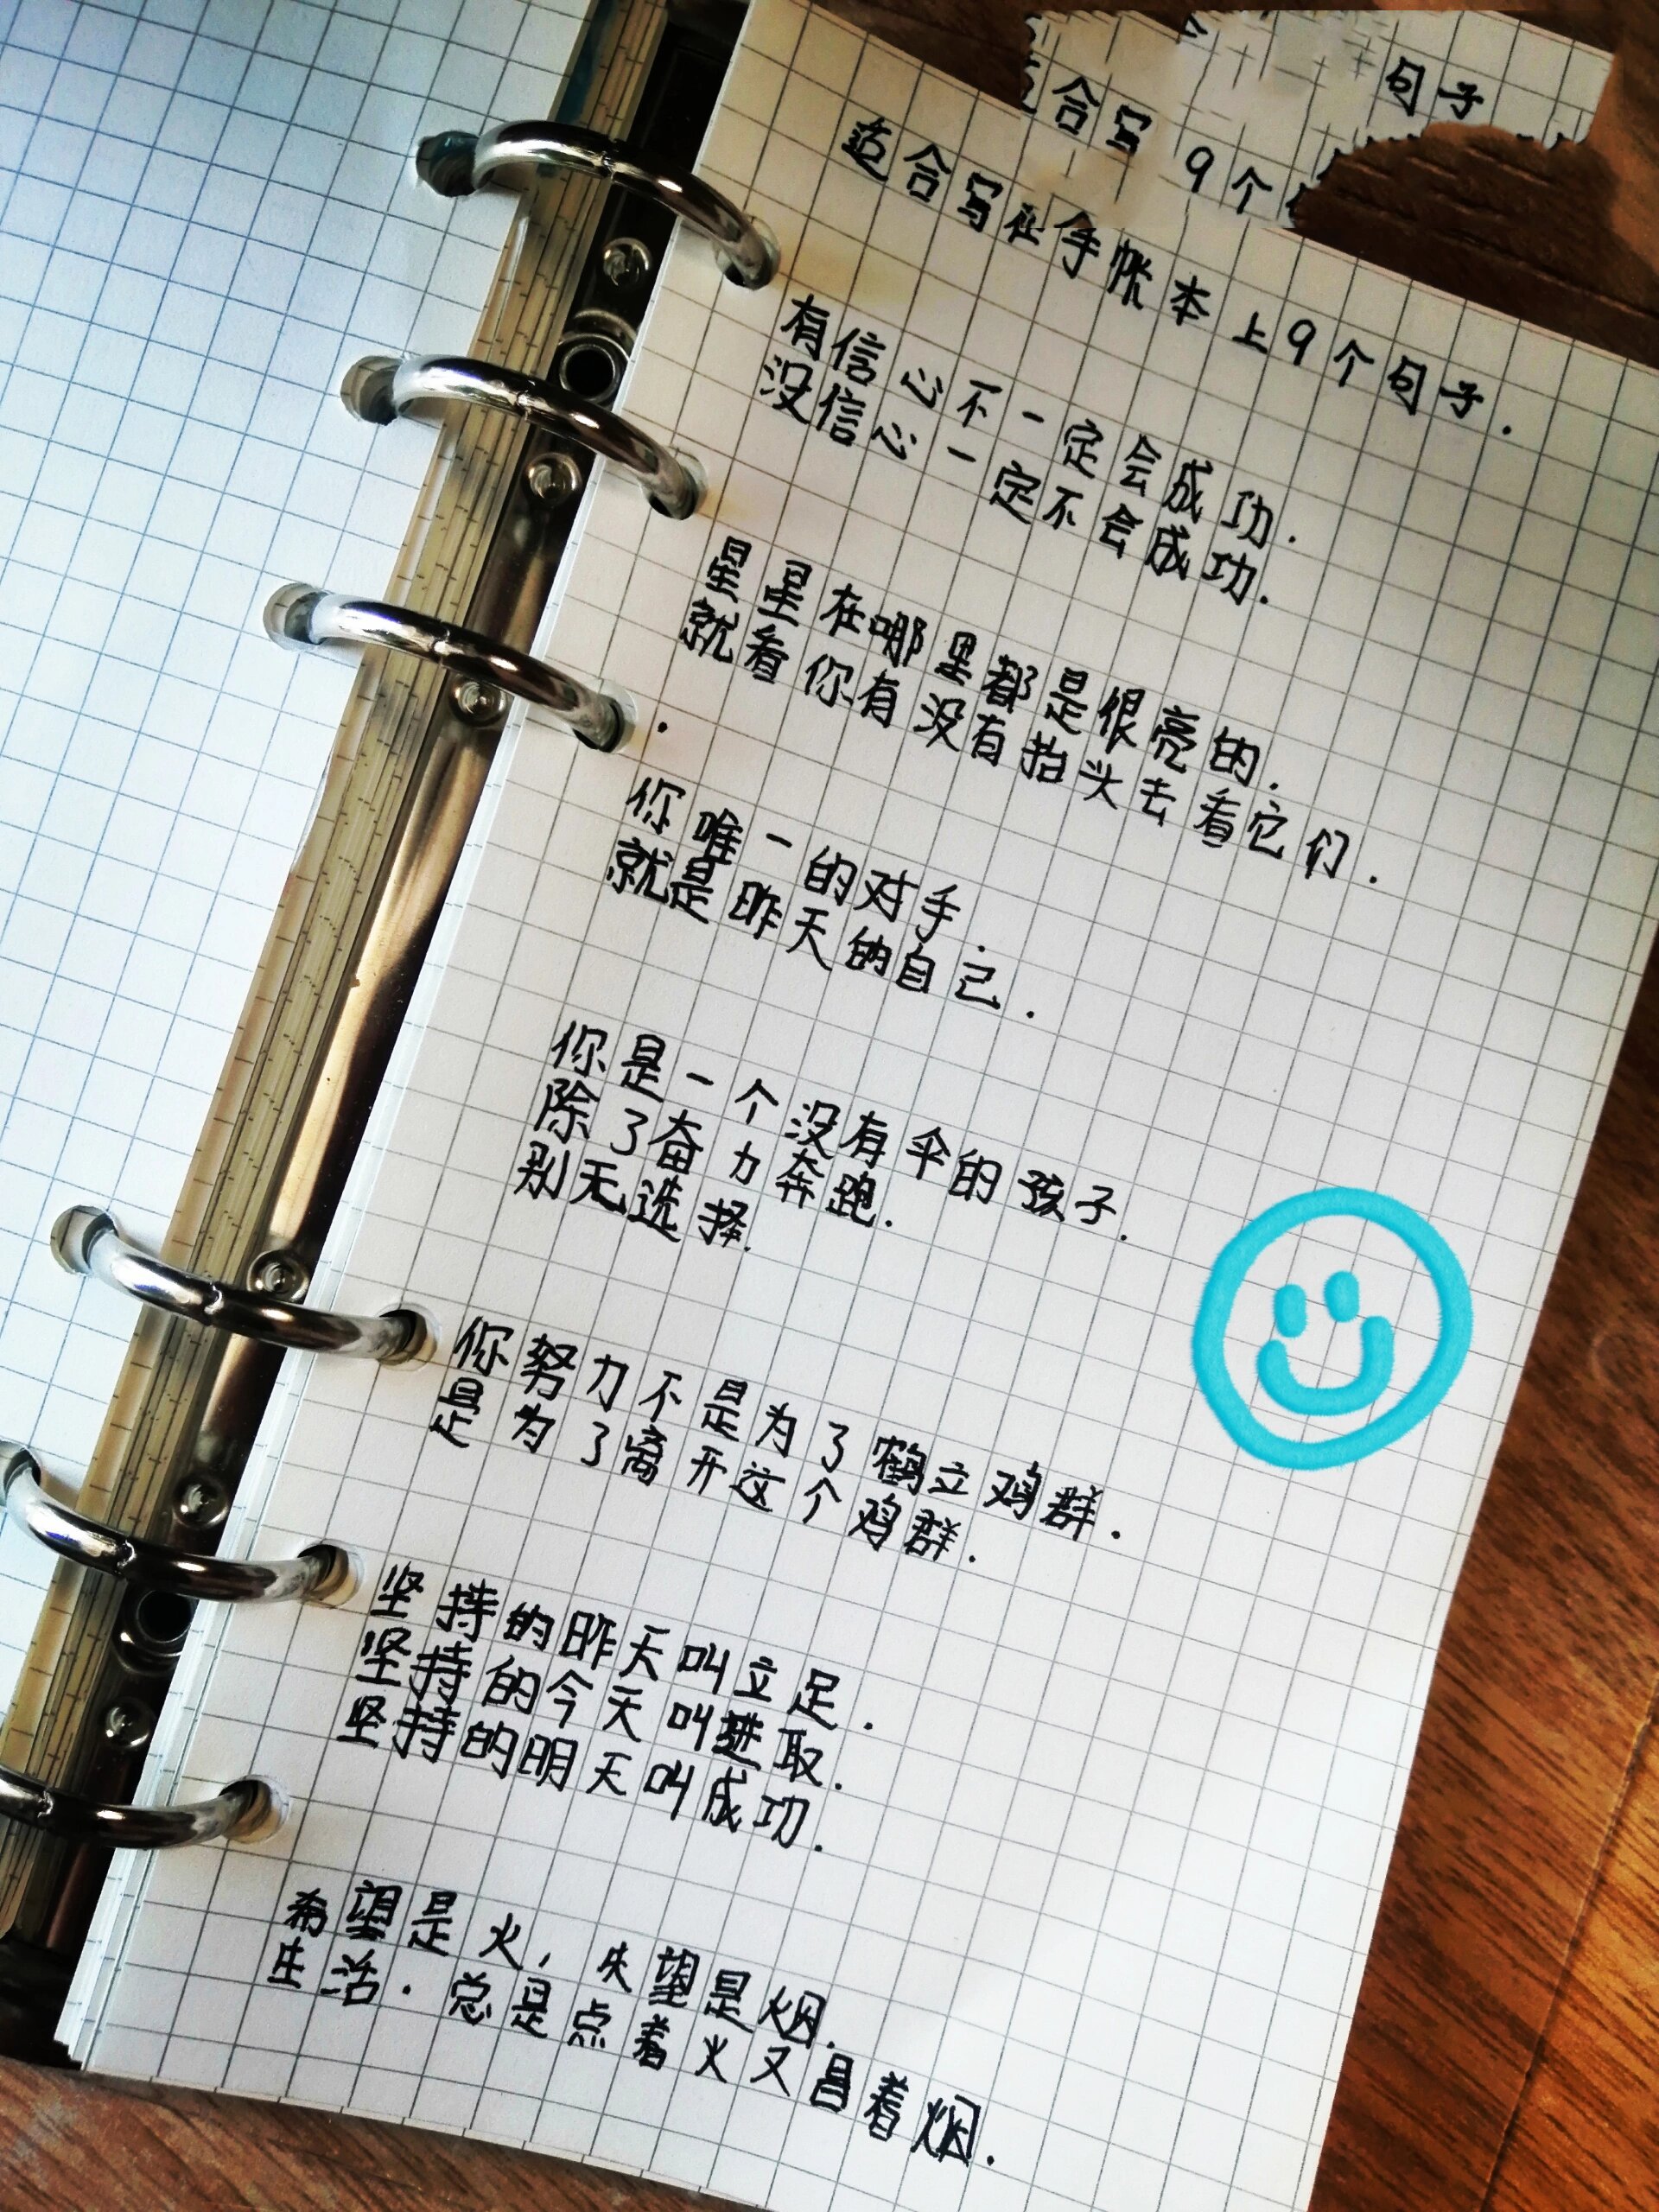 句子
合写 9个
适合写在手帐本上9个句子.
有信心不一定会成功.
没信心一定不会成功.
星星在哪里都是很亮的.
就看你有没有抬头去看它们.
你唯一的对手.
就是昨天的自己.
你是一个没有伞的孩子.
除了奋力奔跑.
别无选择.
你努力不是为了鹤立鸡群.
是为了离开这个鸡群.
坚持的昨天叫立足.
坚持的今天叫进取.
坚持的明天叫成功.
希望是火,失望是烟.
生活.总是点着火又冒着烟.